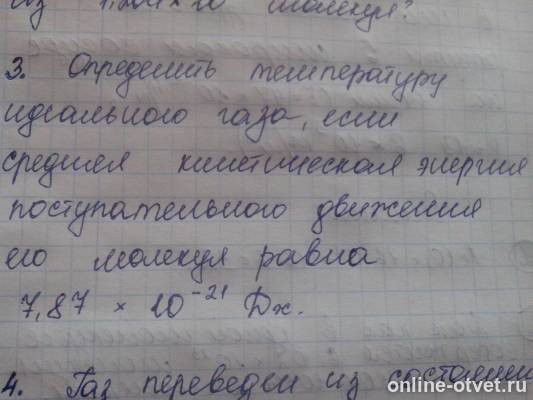 из 1,204 × 10 молекул?
3. Определить температуру
идеального газа, если
средняя кинетическая энергия
поступательного движения
его молекул равна
7,87 × 10⁻²¹ Дж.
4. Газ переведен из состояния
online-otvet.ru